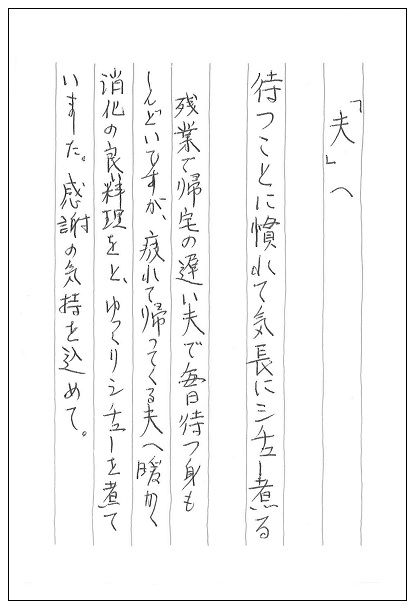 「夫」へ
待つことに慣れて気長にシチュー煮る
残業で帰宅の遅い夫で毎日待つ身も
しんどいですが、疲れて帰ってくる夫へ暖かく
消化の良い料理をと、ゆっくりシチューを煮て
いました。感謝の気持を込めて。